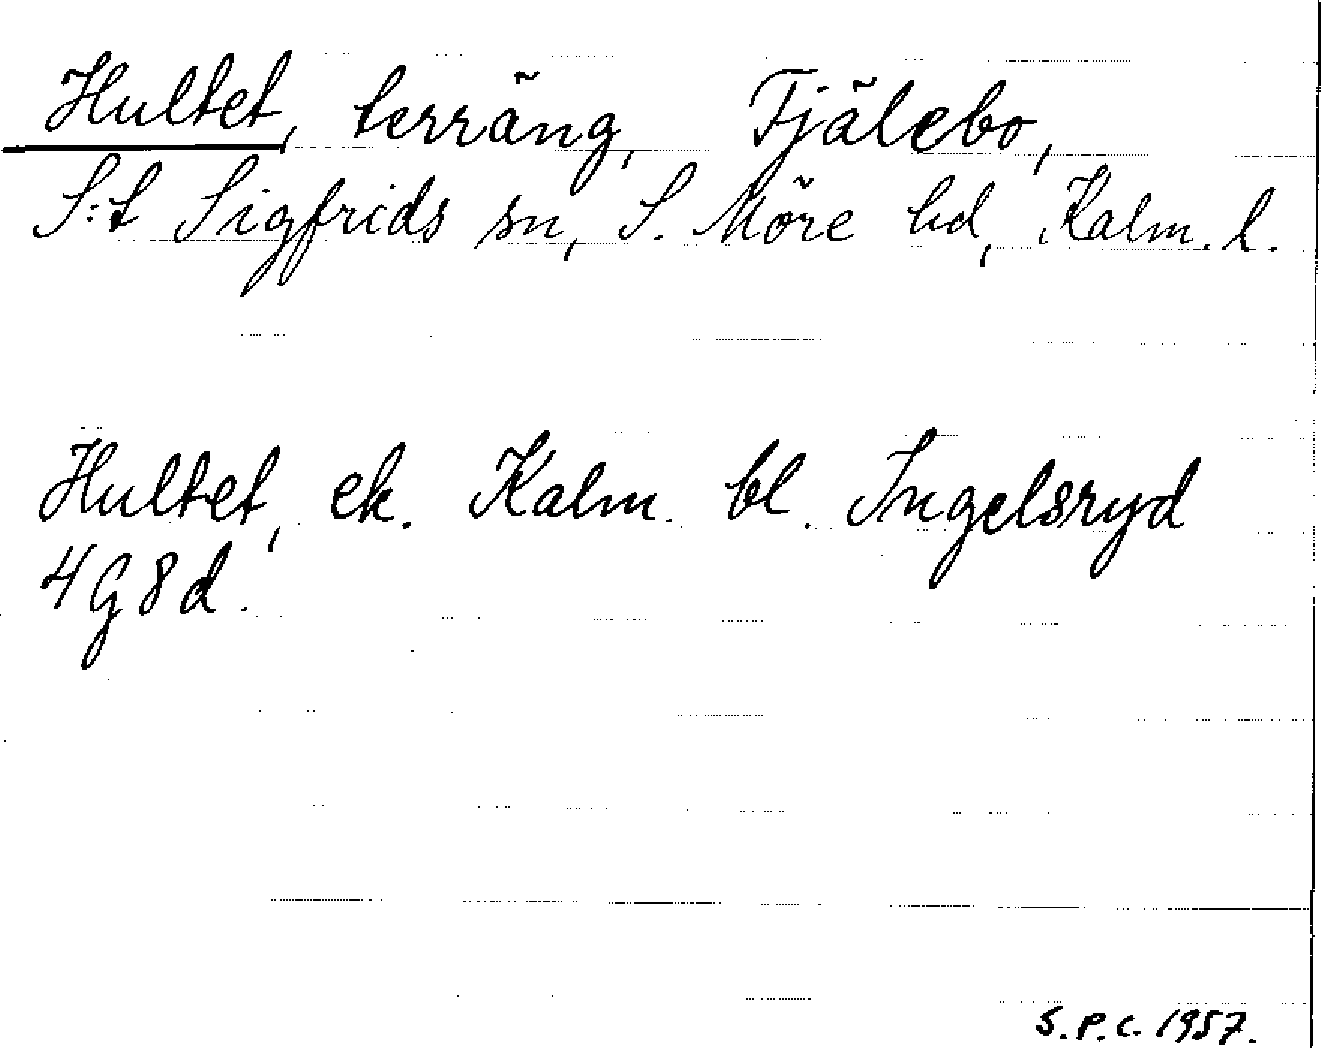 Hultet, terräng, Fjälebo,
S:t Sigfrids sn, S. Möre hd, Kalm. l.
Hultet, ek. Kalm. bl. Ingelsryd
4G8d.
S.P.C. 1957.